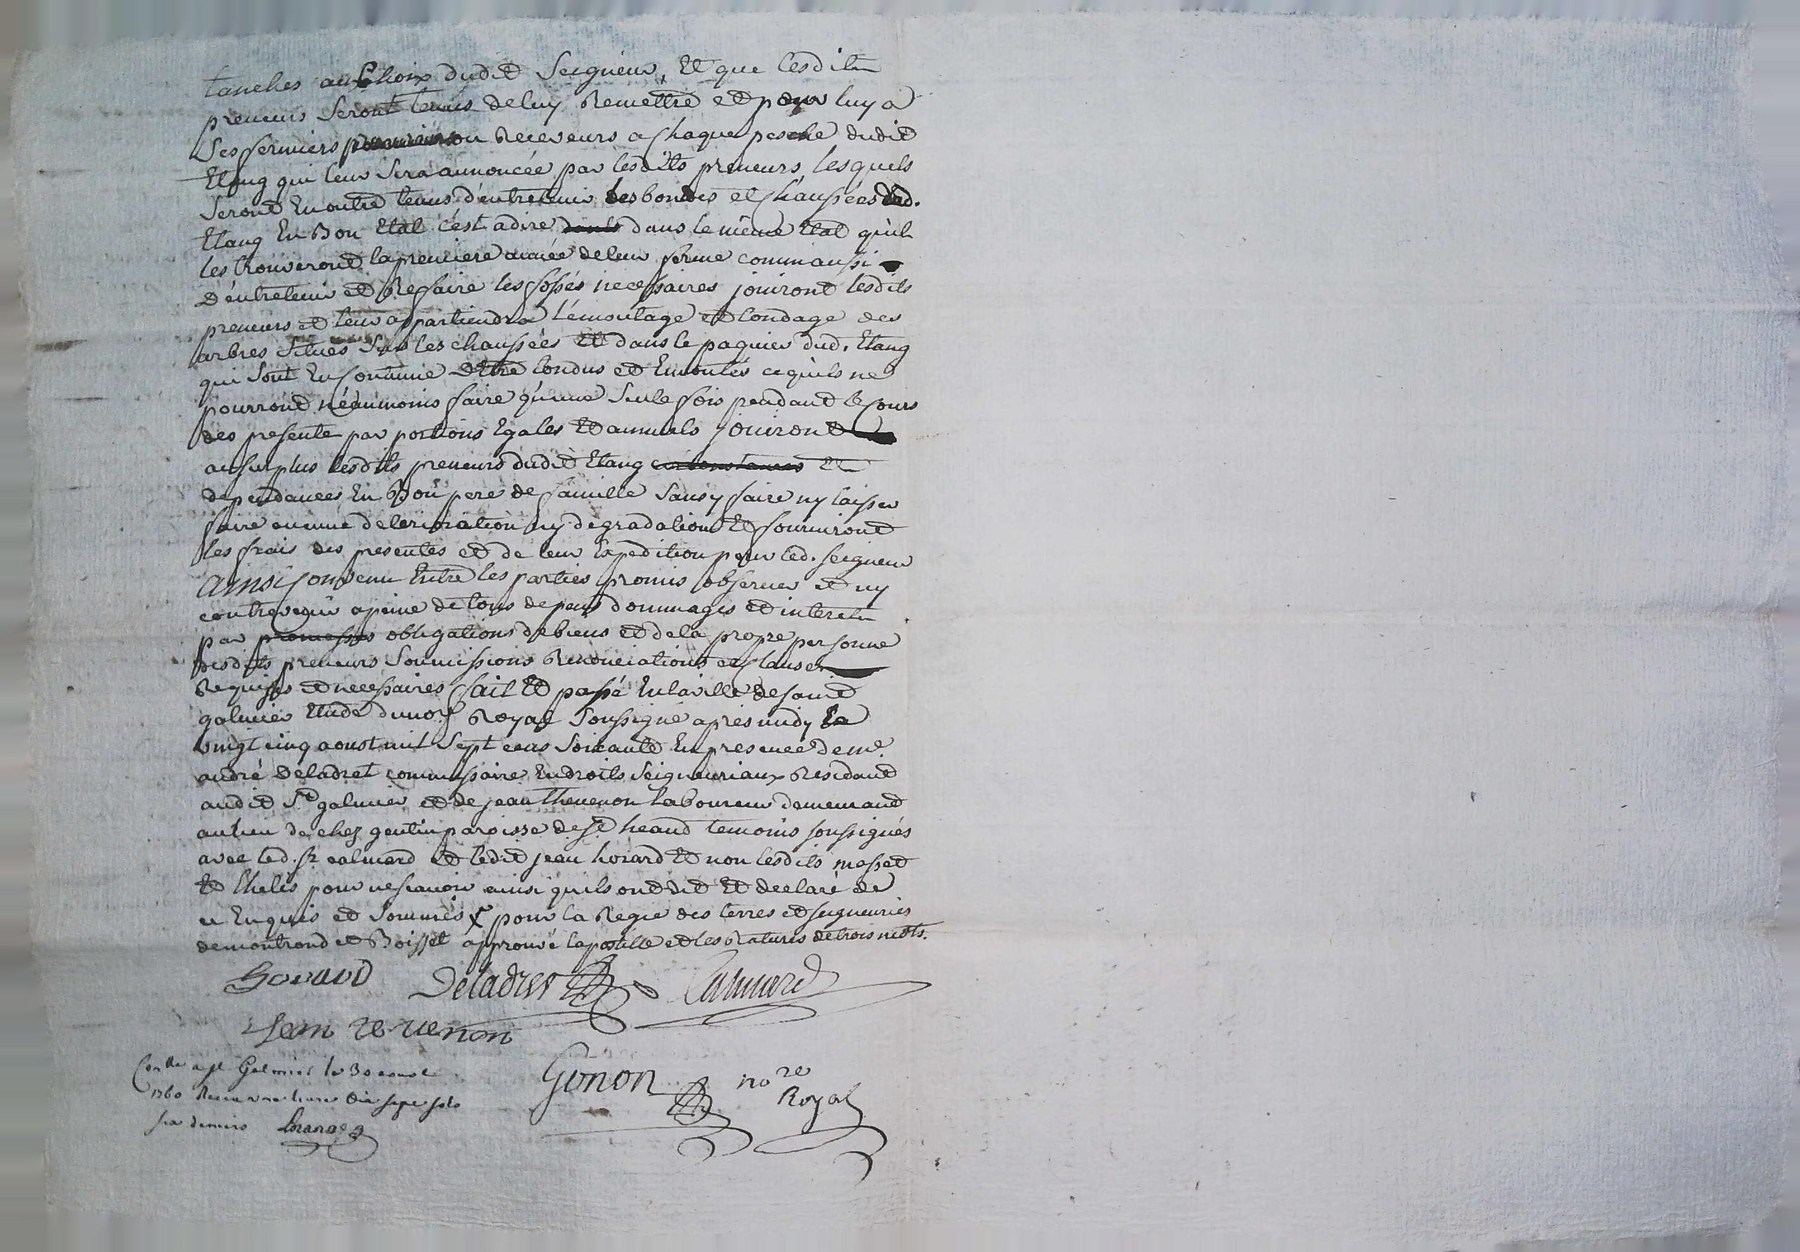 tanches au Choix dudit Seigneur, Et que lesdits
preneurs Seront tenus de luy Remettre et pour luy a
Ses fermiers ou Receveurs a Chaque pesche dudit
Etang qui leur Sera annoncée par lesdits preneurs, lesquels
Seront En outre tenus d'entretenir les bondes et Chaussées dud.
Etang En Bon Etat c'est a dire dans le même Etat qu'ils
les trouveront la premiere année de leur ferme comm aussi
D'entretenir et Refaire les fossés necessaires jouiront lesdits
preneurs et leur appartiendra l'émontage et tondage des
arbres Situés Sur les chaussées Et dans le paquier dud. Etang
qui Sont En Coutume d'Etre tondus et Emontés ce qu'ils ne
pourront néanmoins faire qu'une Seule fois pendant le Cours
des presente par portions Egales Et annuels jouiront
au surplus lesdits preneurs dudit Etang Et
dependances En Bon pere de famille Sans y faire ny laisser
faire aucune deterioration ny degradation Et fourniront
les frais des presentes et de leur Expedition pour led. seigneur
Ainsi Convenu Entre les parties promis observer et ny
contrevenir a peine de tous depens dommages et interets
par promesses obligations de biens et de la propre personne
desdits preneurs Soumissions Renonciations et Clauses
Requises et necessaires fait Et passé En la ville de saint
galmier Etude du nore Royal Soussigné apres midy le
vingt cinq aoust mil Sept cens Soixante En presence de me.
andré Deladret commissaire En droits Seigneuriaux Residant
audit St galmier et de jean thevenon laboureur demeurant
au lieu de chez gentin paroisse de St heand temoins soussignés
avec led. Sr calmard et ledit jean horard Et non lesdits masset
Et thelis pour ne scavoir ainsi qu'ils ont dit Et declaré de
ce Enquis et Sommés x pour la Regie des terres et seigneuries
de montrond et Boisset approuvé lapostille et les Ratures de trois mots.
Horard Deladret Calmard
Jean tevenon
Conlle a st Galmier le 30 aoust
1760 Receu une livre dix sept sols
six deniers
Gonon nore
Royal